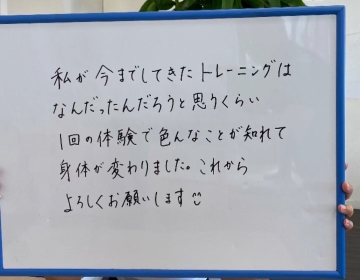 私が今までしてきたトレーニングは
なんだったんだろうと思りくらい
1回の体験で色んなことが知れて
身体が変わりました。これから
よろしくお願いします